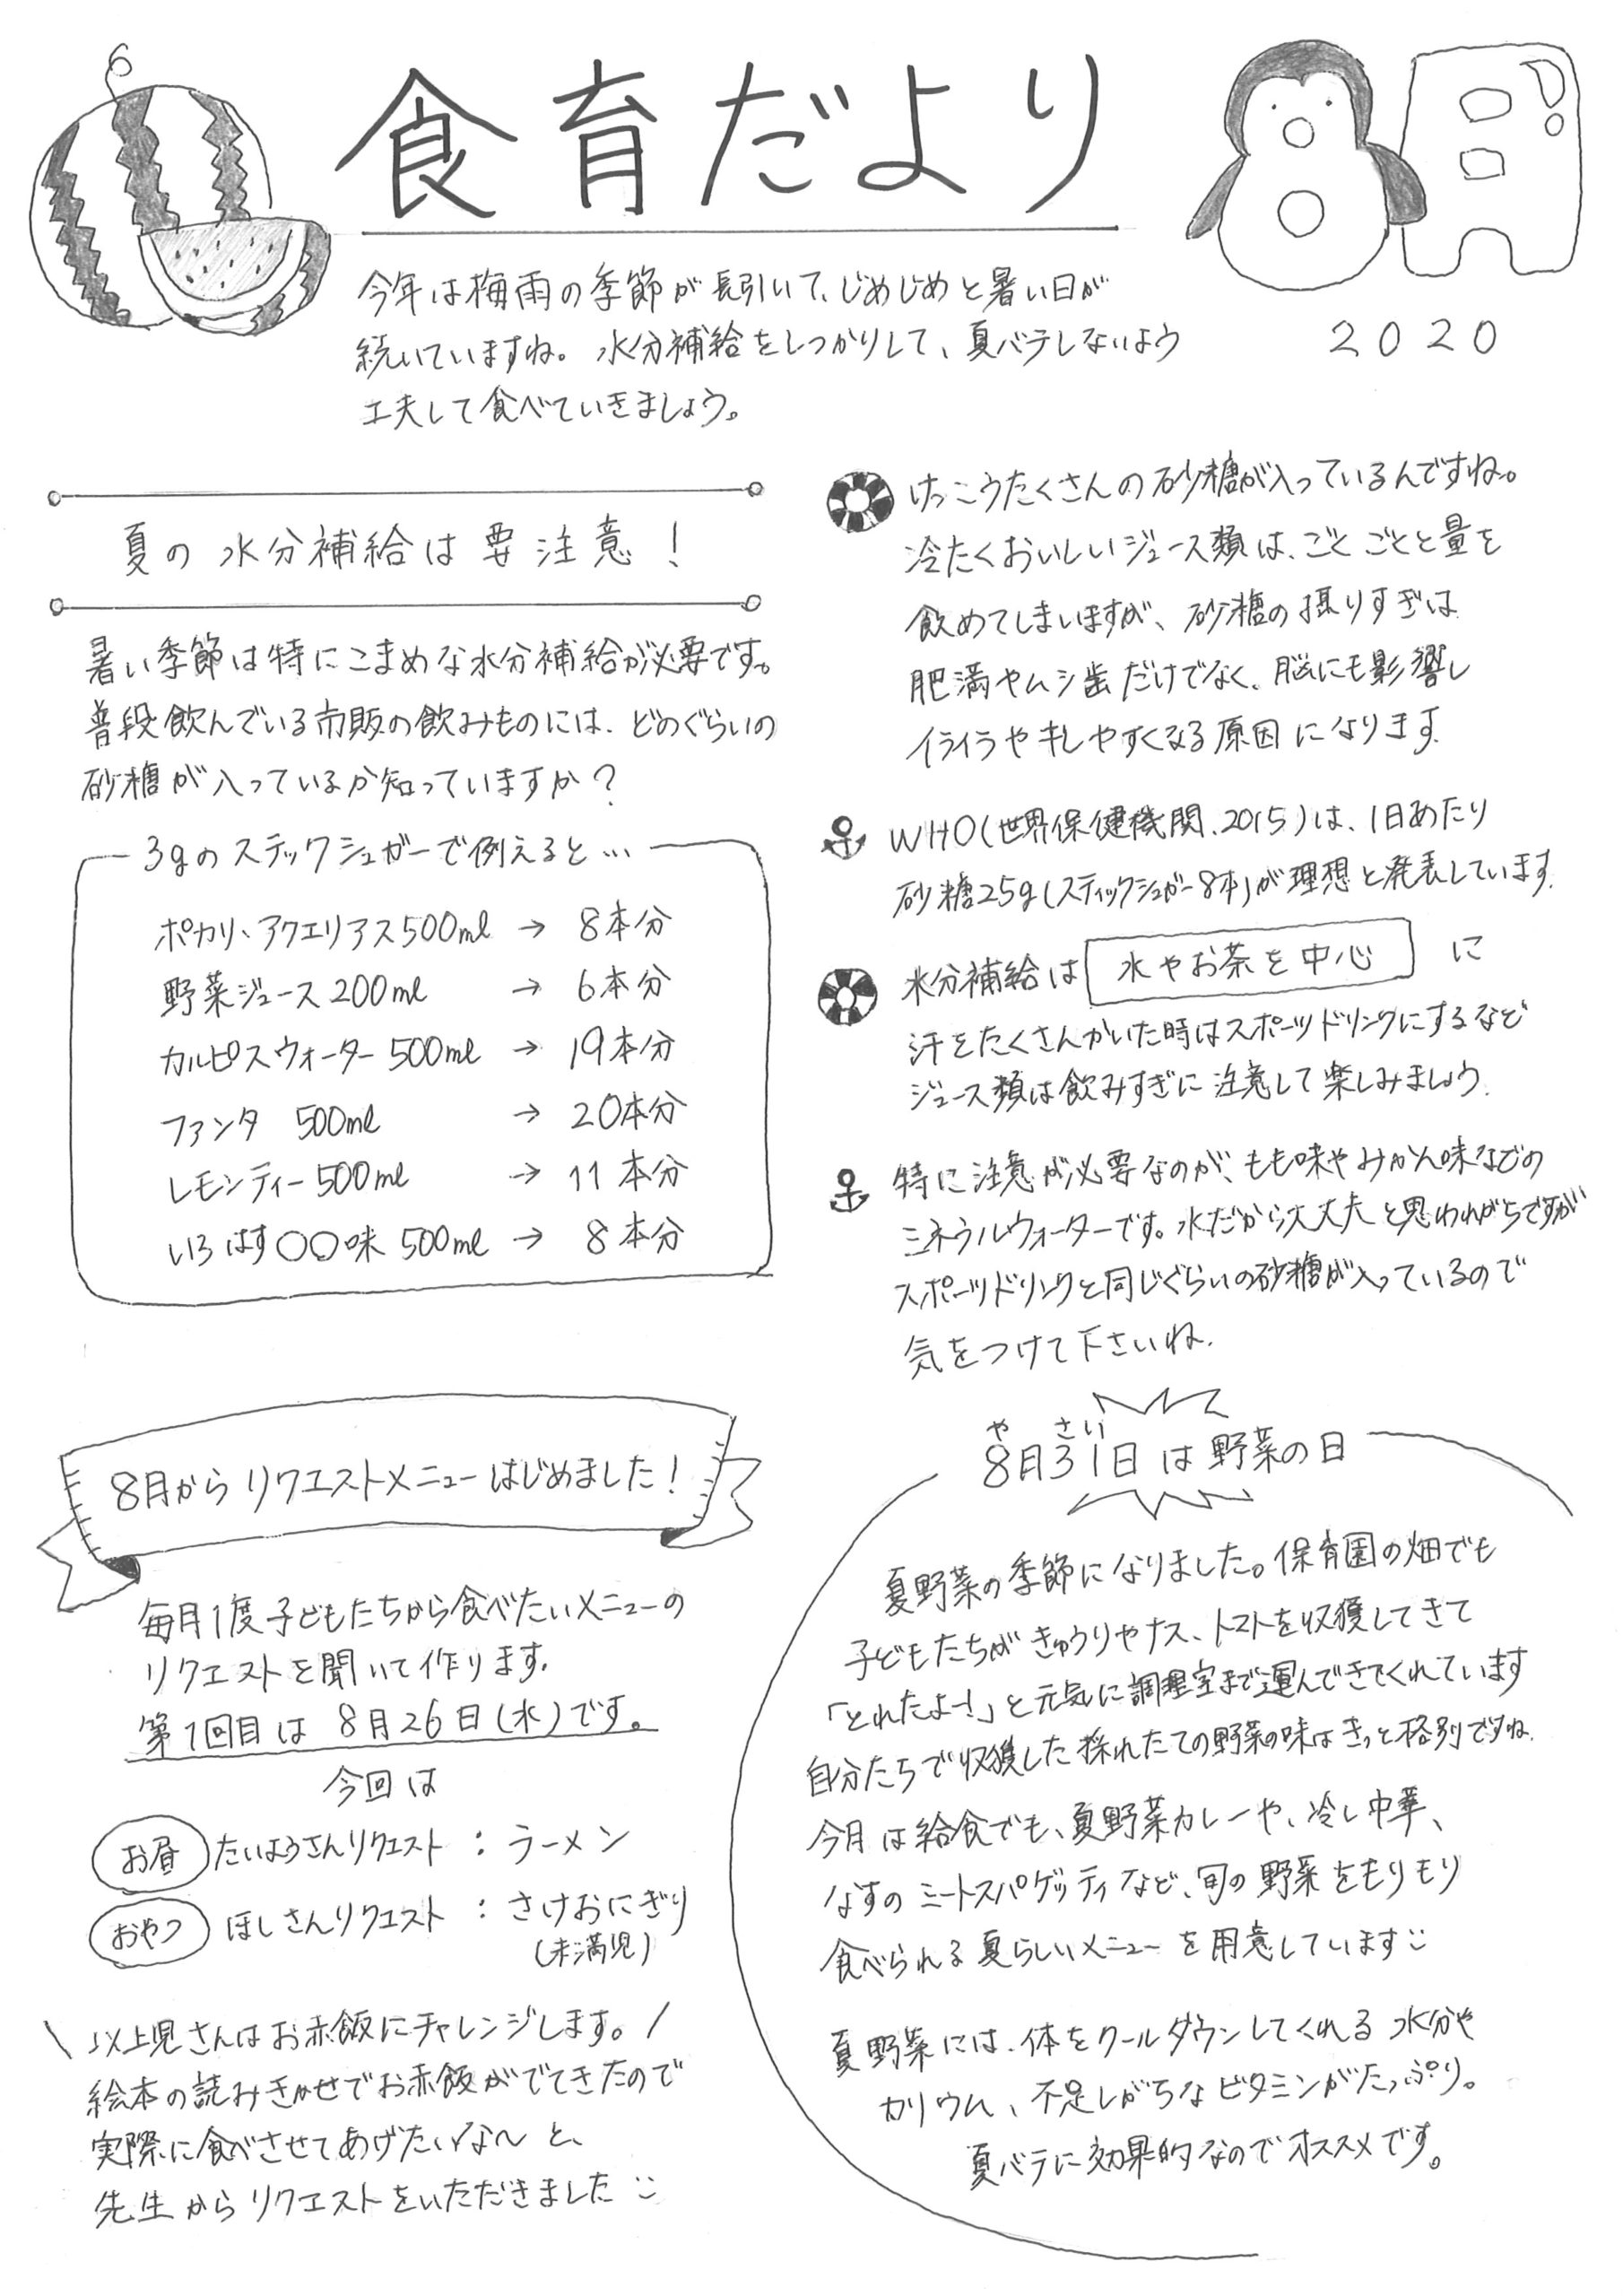 食育だより
8月
2020
今年は梅雨の季節が長引いて、じめじめと暑い日が
続いていますね。水分補給をしっかりして、夏バテしないよう
工夫して食べていきましょう。
夏の水分補給は要注意!
暑い季節は特にこまめな水分補給が必要です。
普段飲んでいる市販の飲みものには、どのぐらいの
砂糖が入っているか知っていますか?
3gのステックシュガーで例えると…
ポカリ、アクエリアス500ml → 8本分
野菜ジュース200ml → 6本分
カルピスウォーター 500ml → 19本分
ファンタ 500ml → 20本分
レモンティー500ml → 11本分
いろはす〇〇味 500ml → 8本分
けっこうたくさんの砂糖が入っているんですね。
冷たくおいしいジュース類は、ごくごくと量を
飲めてしまいますが、砂糖の摂りすぎは
肥満やムシ歯だけでなく、脳にも影響し
イライラやキレやすくなる原因になります。
WHO(世界保健機関、2015)は、1日あたり
砂糖25g(スティックシュガー8本)が理想と発表しています。
水分補給は 水やお茶を中心 に
汗をたくさんかいた時はスポーツドリンクにするなど
ジュース類は飲みすぎに注意して楽しみましょう。
特に注意が必要なのが、もも味やみかん味などの
ミネラルウォーターです。水だから大丈夫と思われがちですが
スポーツドリンクと同じぐらいの砂糖が入っているので
気をつけて下さいね。
8月からリクエストメニューはじめました!
毎月1度子どもたちから食べたいメニューの
リクエストを聞いて作ります。
第1回目は 8月26日(水)です。
今回は
お昼 たいようさんリクエスト : ラーメン
おやつ ほしさんリクエスト : さけおにぎり
(未満児)
\ 以上児さんはお赤飯にチャレンジします。/
絵本の読みきかせでお赤飯がでてきたので
実際に食べさせてあげたいな〜と、
先生からリクエストをいただきました
や さい
8月31日は野菜の日
夏野菜の季節になりました。保育園の畑でも
子どもたちがきゅうりやナス、トマトを収獲してきて
「とれたよー!」と元気に調理室まで運んできてくれています
自分たちで収獲した採れたての野菜の味はきっと格別ですね。
今月は給食でも、夏野菜カレーや、冷し中華、
なすのミートスパゲッティなど、旬の野菜をもりもり
食べられる夏らしいメニューを用意しています
夏野菜には、体をクールダウンしてくれる水分や
カリウム、不足しがちなビタミンがたっぷり。
夏バテに効果的なのでオススメです。